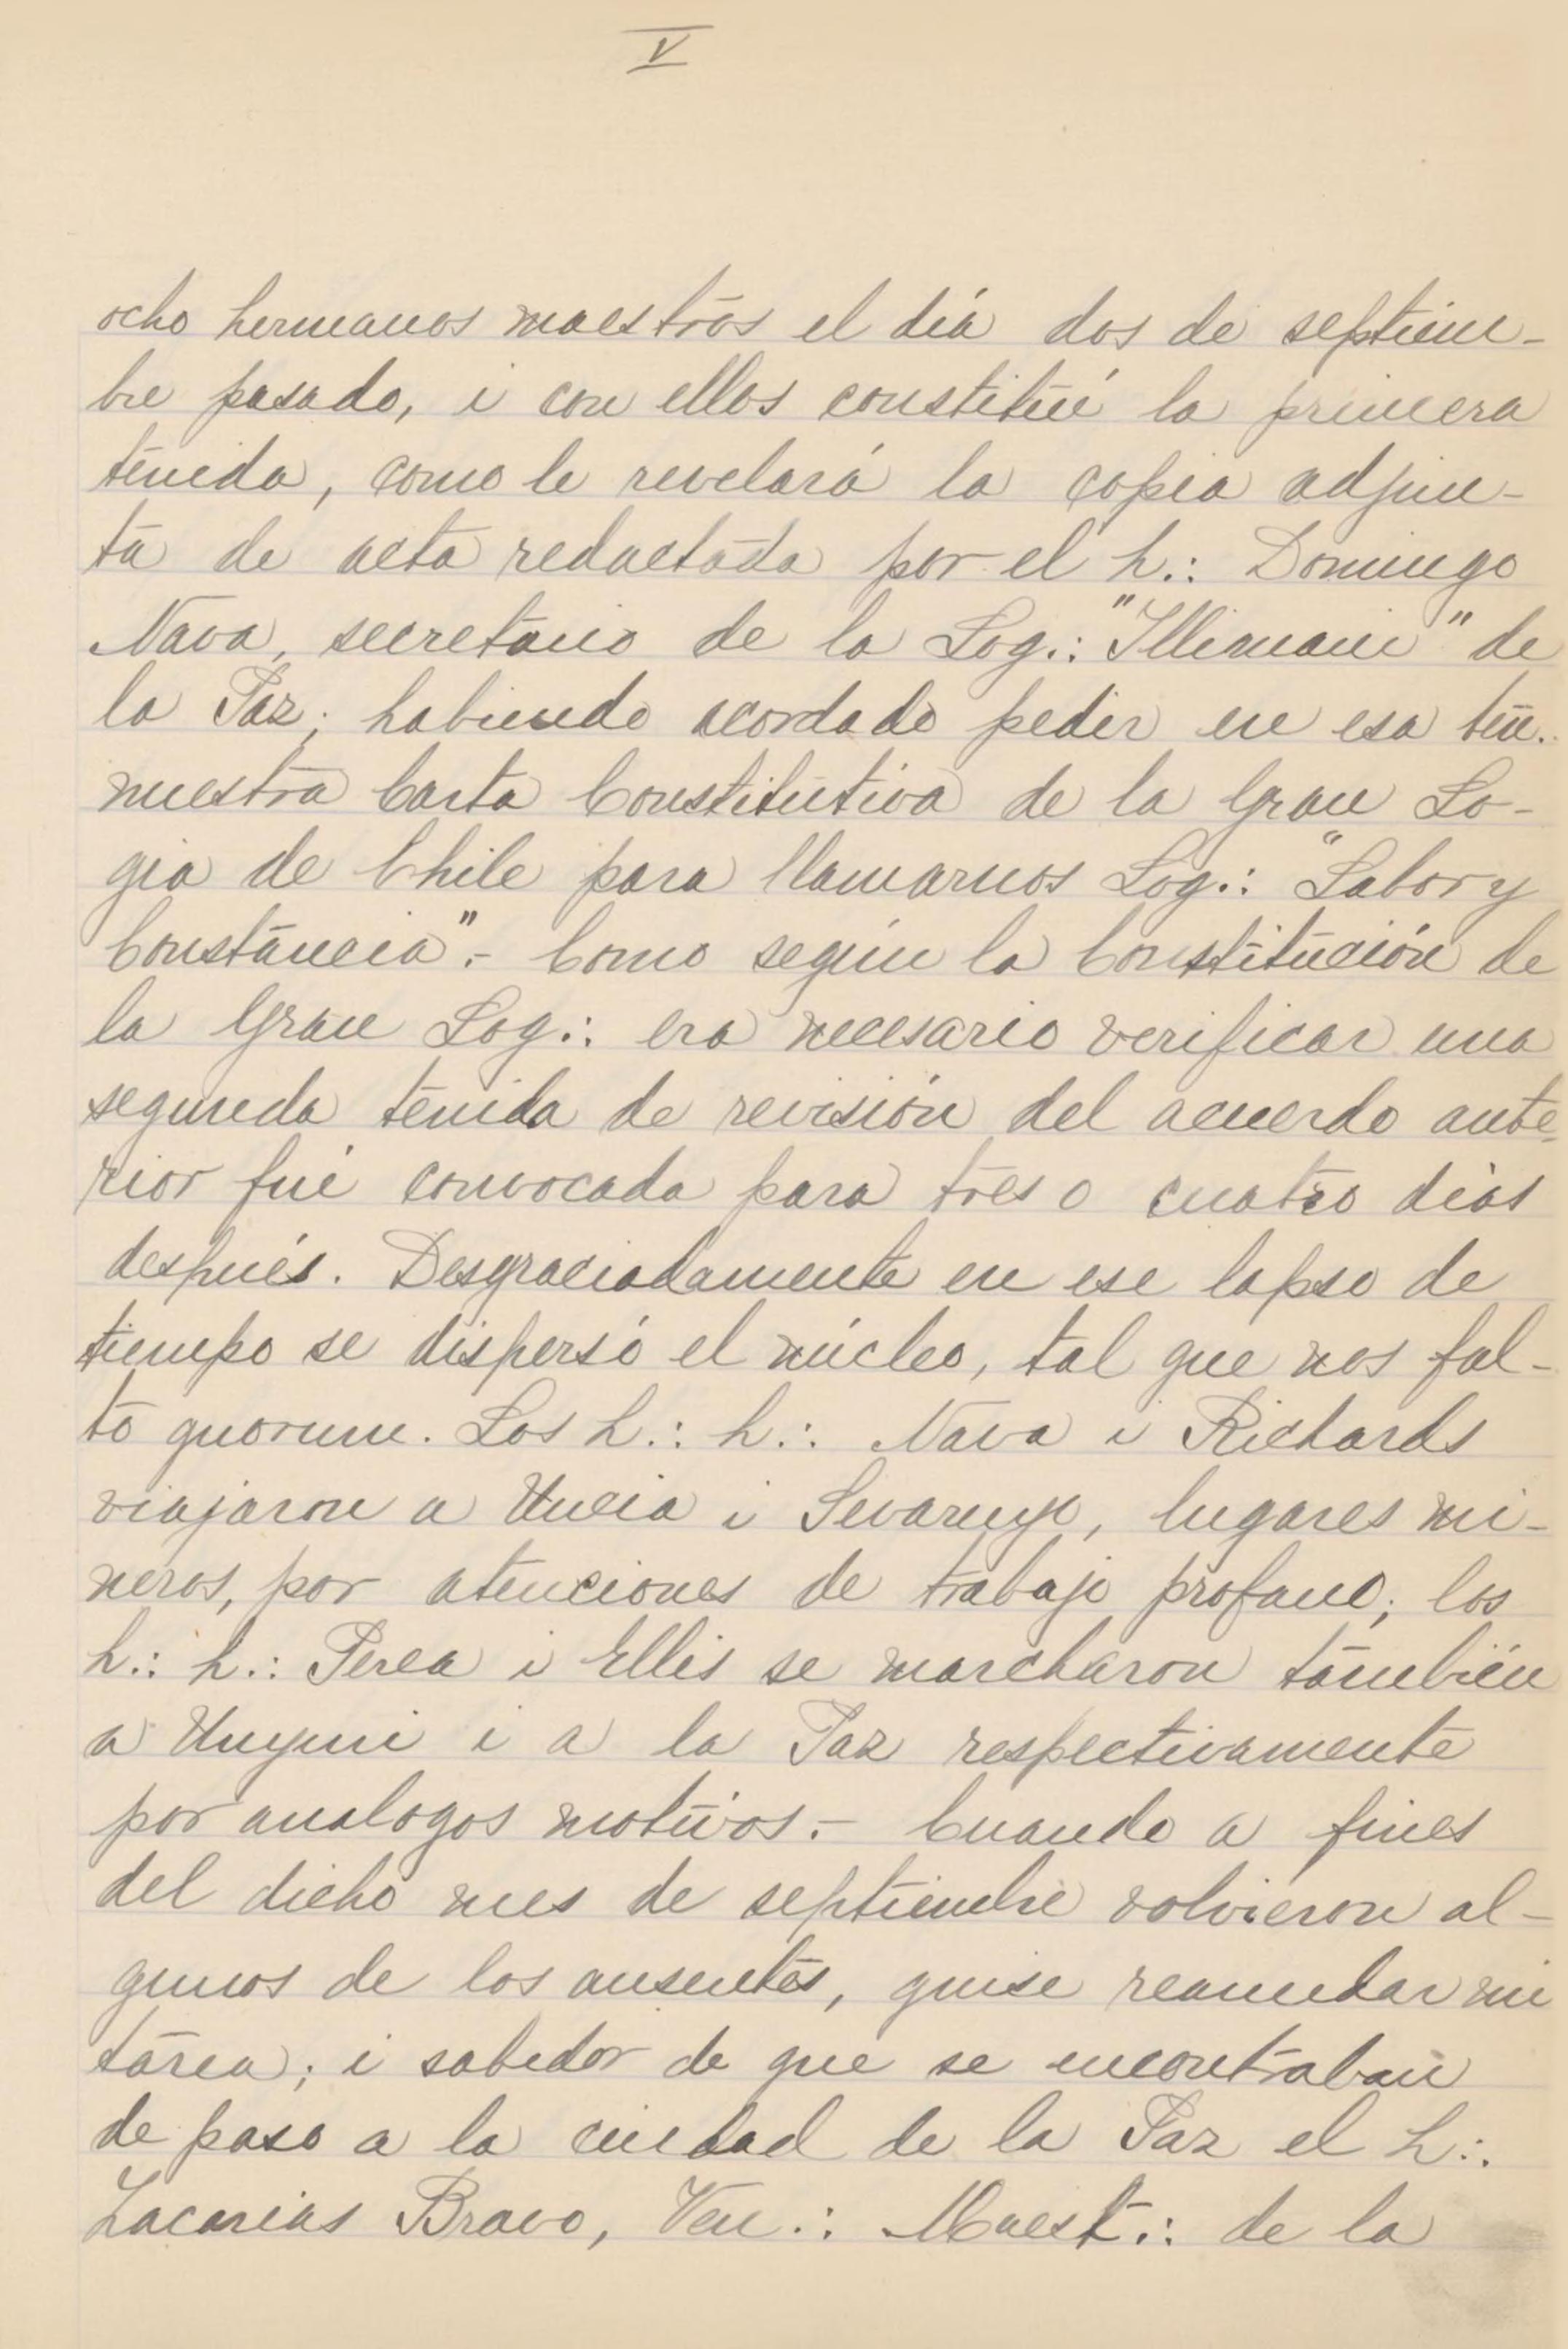 V
ocho hermanos maestros el día dos de septiem-
bre pasado, i con ellos constituí la primera
tenida, como le revelará la copia adjun-
ta de acta redactada por el h.: Domingo
Nava, secretario de la Log.: "Illimani" de
la Paz; habiendo acordado pedir en esa ten.:
nuestra Carta Constitutiva de la Gran Lo-
gia de Chile para llamarnos Log.: "Labor y
Constancia".- Como según la Constitución de
la Gran Log.: era necesario verificar una
segunda tenida de revisión del acuerdo ante-
rior fué convocada para tres o cuatro días
después. Desgraciadamente en ese lapso de
tiempo se dispersó el núcleo, tal que nos fal-
tó quorum. Los h.: h.: Nava i Richards
viajaron a Uncia i Sevaruyo, lugares mi-
neros, por atenciones de trabajo profano; los
h.: h.: Perea i Ellis se marcharon también
a Uuyuni i a la Paz respectivamente
por analogos motivos.- Cuando a fines
del dicho mes de septiembre volvieron al-
gunos de los ausentes, quise reanudar mi
tarea; i sabedor de que se encontraban
de paso a la ciudad de la Paz el h.:
Zacarias Bravo, Ven.: Maest.: de la